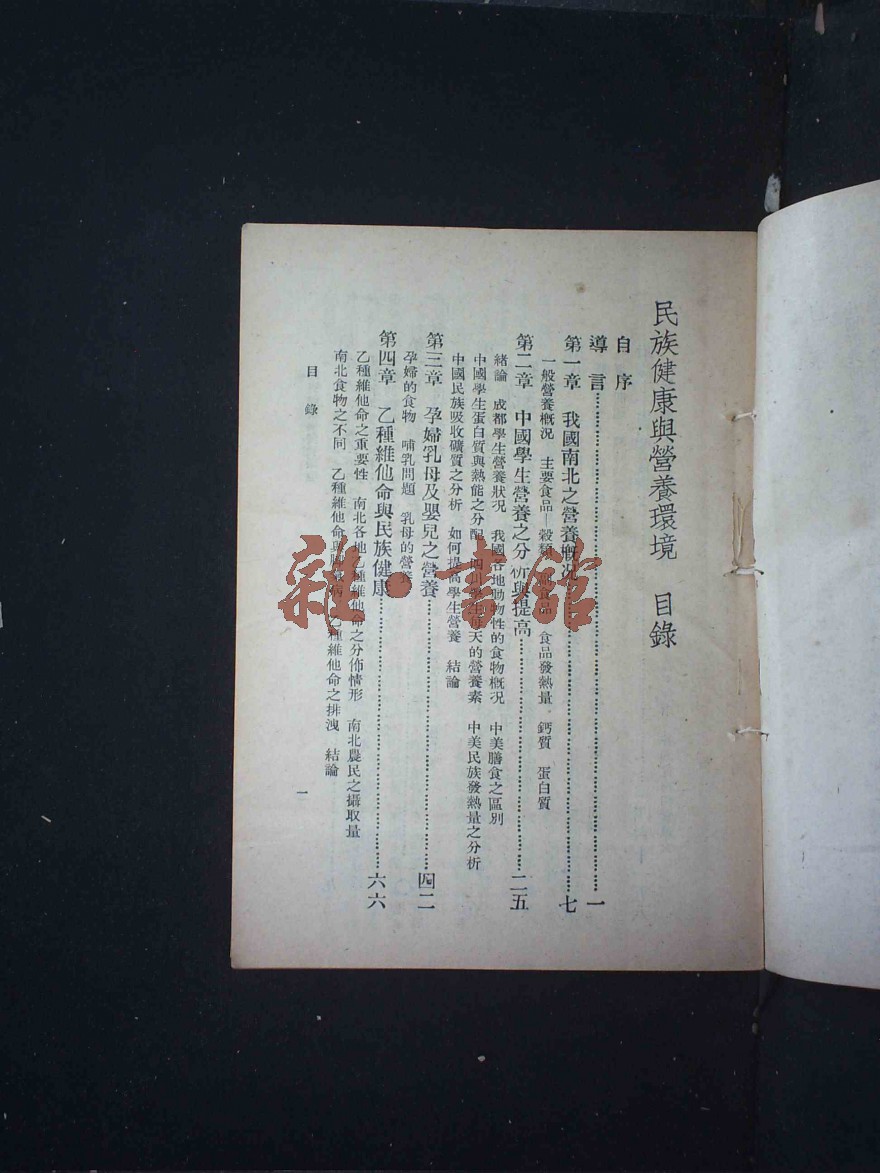 民族健康與營養環境　目錄
自序
導言……一
第一章　我國南北之營養概況……七
一般營養概況　主要食品—穀類　副食品　食品發熱量　鈣質　蛋白質
第二章　中國學生營養之分析與提高……二五
緒論　成都學生營養狀況　我國各地動物性的食物概况　中美膳食之區別
中國學生蛋白質與熱能之分配　四川學生每天的營養素　中美民族發熱量之分析
中國民族吸收礦質之分析　如何提高學生營養　結論
第三章　孕婦乳母及嬰兒之營養……四二
孕婦的食物　哺乳問題　乳母的營養
第四章　乙種維他命與民族健康……六六
乙種維他命之重要性　南北各地乙種維他命之分佈情形　南北農民之攝取量
南北食物之不同　乙種維他命與脚氣病　乙種維他命之排洩　結論
目錄
一
雜·書館